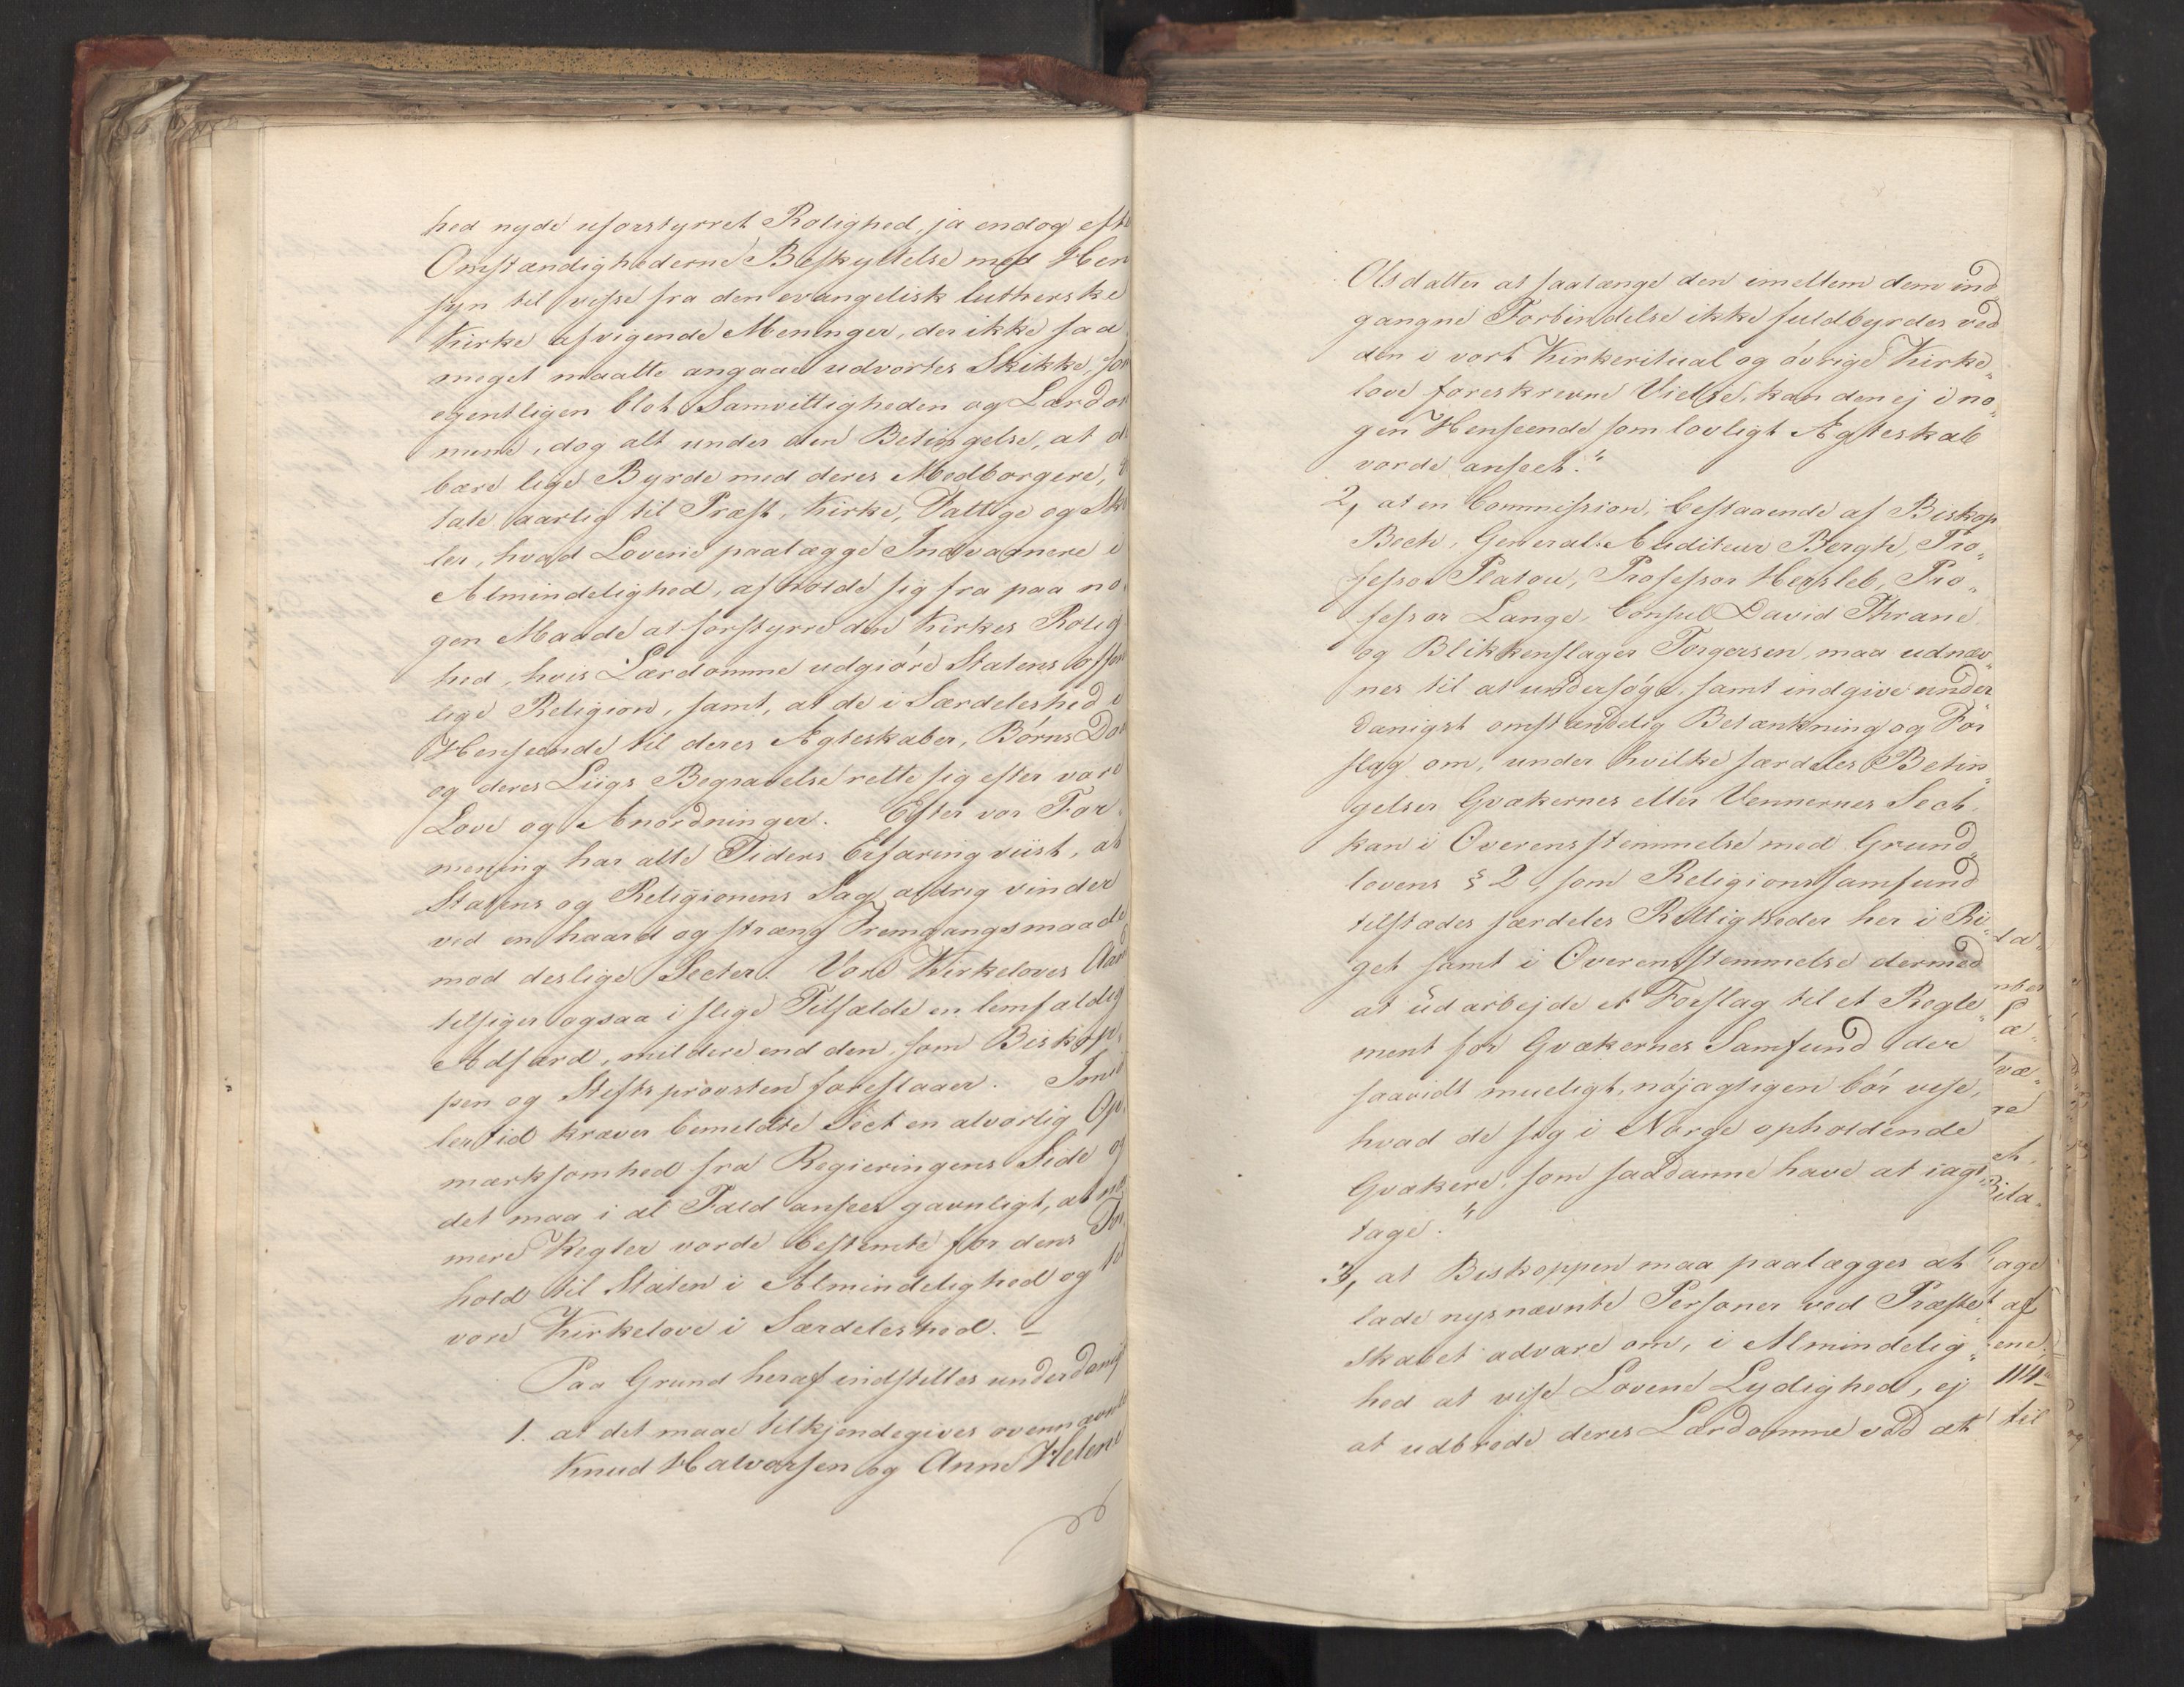 hed nyde uforstyrret Rolighed, ja endog efte
Omstændighederne Beskyttelse med Hen
syn til visse fra den evangelisk lutherske
Kirke afvigende Meninger, der ikke saa
meget maatte angaae udvortes Skikke, som
egentligen blot Samvittigheden og Lærdom
mene, dog alt under den Betingelse, at de
bære lige Byrde med deres Medborgere,
tale aarlig til Præst, Kirke, Fattige og Sko
ler, hvad Lovene paalægge Indvaanere i
Almindelighed, afholde sig fra paa no
gen Maade at forstyrre den Kirkes Rolig
hed, hvis Lærdomme udgiøre Statens offent
lige Religion, samt, at de i Særdeleshed i
Henseende til deres Ægteskaber, Børns Daab
og deres Liigs Begravelse rette sig efter vore
Love og Anordninger. Efter vor For
mening har alle Tiders Erfaring viist, at
Statens og Religionens Sag aldrig vinder
ved en haard og stræng Fremgangsmaade
mod deslige Secter. Vore Kirkeloves Aand
tilsiger ogsaa i slige Tilfælde en lemfældig
Adfærd, mildere end den, som Biskop-
pen og Stiftsprovsten foreslaaer. Imid
lertid kræver bemeldte Sect en alvorlig Op
mærksomhed fra Regieringens Side og
det maa i al Fald ansees gavnligt, at næ
mere Regler vorde bestemte for dens For
hold til Staten i Almindelighed og til
vore Kirkelove i Særdeleshed. –
Paa Grund heraf indstilles underdanigst
1. at det maae tilkjendegives ovennævnte
Knud Halvorsen og Anne Helene
Olsdatter at saalænge den imellem dem ind„
gangne Forbindelse ikke fuldbyrdes ved
den i vort Kirkeritual og øvrige Kirke„
love foreskrevne Vielse, kan den ej i no„
gen Henseende som lovligt Ægteskab
vorde anseet."
2, at en Commission, bestaaende af Biskop
Bech, General-Auditeur Bergh, Pro„
fessor Platou, Professor Hersleb, Pro„
fessor Lange, Consul David Thrane
og Blikkenslager Torgersen, maa udnæv„
nes til at undersøge, samt indgive under„
danigst omstændelig Betænkning og For
slag om, under hvilke særdeles Betin„
gelser Qvækernes eller Vennernes Sect
kan i Overensstemmelse med Grund„
lovens § 2, som Religionssamfund
tilstædes særdeles Rettigheder her i Ri„
get samt i Overensstemmelse dermed
at udarbejde et Forslag til et Regle„
ment for Qvækernes Samfund, der
saavidt mueligt, nøjagtigen bør vise,
hvad de sig i Norge opholdende
Qvækere, som saadanne have at iagt„
tage."
3, at Biskoppen maa paalægges at
lade nysnævnte Personer ved Præste„
skabet advare om, i Almindelig„
hed at vise Lovene Lydighed, ej
at udbrede deres Lærdomme ved at